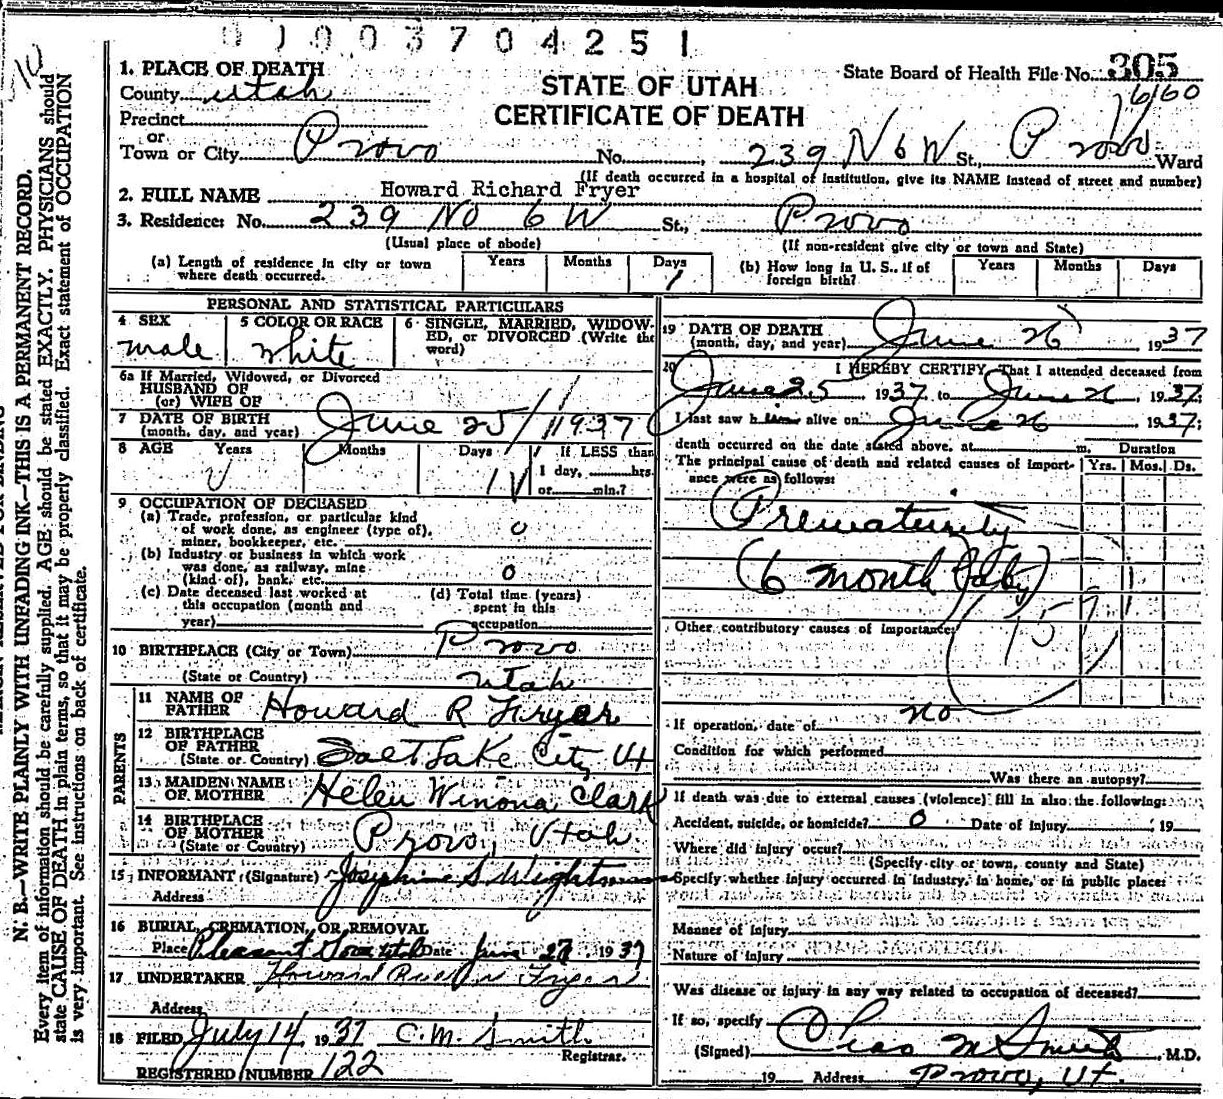 0 1 0 0 3 7 0 4 2 5 1
State Board of Health File No. 305
6160
STATE OF UTAH
CERTIFICATE OF DEATH
1. PLACE OF DEATH
County Utah
Precinct
or
Town or City Provo No. , 239 N 6 W St., Provo Ward
(If death occurred in a hospital or institution, give its NAME instead of street and number)
2. FULL NAME Howard Richard Fryer
3. Residence: No. 239 No 6 W St., Provo
(Usual place of abode) (If non-resident give city or town and State)
(a) Length of residence in city or town where death occurred. Years Months Days 1
(b) How long in U. S., if of foreign birth? Years Months Days
PERSONAL AND STATISTICAL PARTICULARS
4 SEX male
5 COLOR OR RACE White
6 SINGLE, MARRIED, WIDOWED, or DIVORCED (Write the word)
6a If Married, Widowed, or Divorced
HUSBAND OF
(or) WIFE OF
7 DATE OF BIRTH
(month, day, and year) June 25 / 1937
8 AGE Years Months Days 1 If LESS than
1 day, hrs.
or min.?
9 OCCUPATION OF DECEASED
(a) Trade, profession, or particular kind
of work done, as engineer (type of),
miner, bookkeeper, etc. 0
(b) Industry or business in which work
was done, as railway, mine
(kind of), bank, etc. 0
(c) Date deceased last worked at
this occupation (month and
year)
(d) Total time (years)
spent in this
occupation
10 BIRTHPLACE (City or Town) Provo
(State or Country) Utah
PARENTS
11 NAME OF FATHER Howard R Fryer
12 BIRTHPLACE OF FATHER
(State or Country) Salt Lake City Ut
13 MAIDEN NAME OF MOTHER Helen Winona Clark
14 BIRTHPLACE OF MOTHER
(State or Country) Provo, Utah
15 INFORMANT (Signature) Josephine S Wightman
Address
16 BURIAL, CREMATION, OR REMOVAL
Place Pleasant Date June 27, 1937
17 UNDERTAKER Howard Fryer
Address
18 FILED July 14, 1937 C. M. Smith
Registrar.
REGISTERED NUMBER 122
19 DATE OF DEATH
(month, day, and year) June 26 1937
20 I HEREBY CERTIFY, That I attended deceased from
June 25, 1937, to June 26, 1937;
I last saw him alive on June 26 1937;
death occurred on the date stated above, at m.
The principal cause of death and related causes of importance were as follows: Duration Yrs. Mos. Ds.
Prematurity
(6 month baby)
157
Other contributory causes of importance:
If operation, date of no
Condition for which performed
Was there an autopsy?
If death was due to external causes (violence) fill in also the following:
Accident, suicide, or homicide? 0 Date of injury , 19
Where did injury occur?
(Specify city or town, county and State)
Specify whether injury occurred in industry, in home, or in public place:
Manner of injury
Nature of injury
Was disease or injury in any way related to occupation of deceased?
If so, specify
(Signed) Chas M Smith, M.D.
19 Address Provo, Ut.
N. B.—WRITE PLAINLY WITH UNFADING INK—THIS IS A PERMANENT RECORD.
Every item of information should be carefully supplied. AGE should be stated EXACTLY. PHYSICIANS should
state CAUSE OF DEATH in plain terms, so that it may be properly classified. Exact statement of OCCUPATION
is very important. See instructions on back of certificate.
10